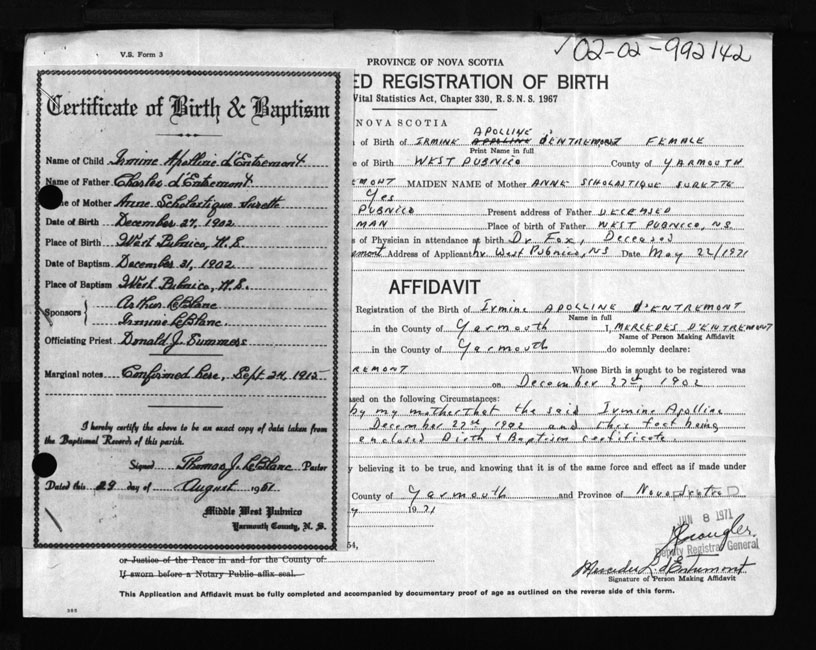 V.S. Form 3
✓02-02-992142
Certificate of Birth & Baptism
Name of Child Irmine Apolline d'Entremont
Name of Father Charles d'Entremont
me of Mother Anne Scholastique Surette
Date of Birth December 27, 1902
Place of Birth West Pubnico, N.S.
Date of Baptism December 31, 1902
Place of Baptism West Pubnico, N.S.
Sponsors
Arthur LeBlanc
Irmine LeBlanc
Officiating Priest Donald J.
Marginal notes Confirmed here, Sept. 24, 1915
I hereby certify the above to be an exact copy of data taken from
the Baptismal Records of this parish.
Signed Thomas J. LeBlanc Pastor
Dated this 29 day of
August 1961
Middle West Pubnico
Yarmouth County, N. S.
PROVINCE OF NOVA SCOTIA
ED REGISTRATION OF BIRTH
Vital Statistics Act, Chapter 330, R. S. N. S. 1967
NOVA SCOTIA
APOLLINE
of Birth of IRMINE APOLLINE D'ENTREMONT FEMALE
Print Name in full
e of Birth WEST PUBNICO County of YARMOUTH
EMONT MAIDEN NAME of Mother ANNE SCHOLASTIQUE SURETTE
Yes
PUBNICO Present address of Father DECEASED
MAN Place of birth of Father WEST PUBNICO, N.S.
s of Physician in attendance at birth Dr Fox, Deceased
emont Address of Applicant West Pubnico, NS Date May 22/1971
AFFIDAVIT
Registration of the Birth of Irmine APOLLINE D'ENTREMONT
Name in full
in the County of Yarmouth I, MERCEDES D'ENTREMONT
Name of Person Making Affidavit
in the County of Yarmouth do solemnly declare:
REMONT Whose Birth is sought to be registered was
on December 27th, 1902
ased on the following Circumstances:
by my mother That the said Irmine Apolline
December 27th, 1902 and this fact being
enclosed Birth & Baptism certificate.
y believing it to be true, and knowing that it is of the same force and effect as if made under
County of Yarmouth and Province of Nova Scotia
y 1971
JUN 8 1971
Deputy Registrar General
54,
or Justice of the Peace in and for the County of:
If sworn before a Notary Public affix seal.
Mercedes L. d'Entremont
Signature of Person Making Affidavit
This Application and Affidavit must be fully completed and accompanied by documentary proof of age as outlined on the reverse side of this form.